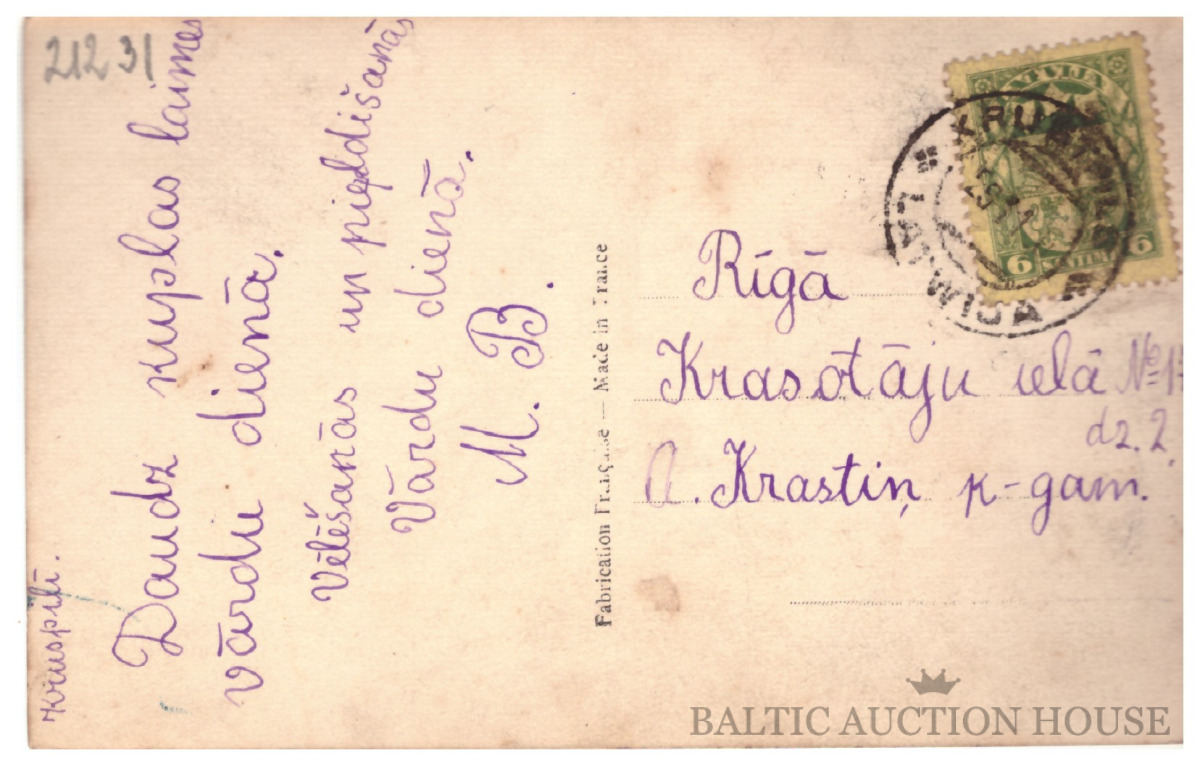 21231
Kruspilī.
Daudz kuplas laimes
vārdu dienā.
Vēlēšanās un piedišanās
Vārdu dienā.
M. B.
Fabrication Française — Made in France
LATVIJA
6 SANTIMI 6
LATWIJA
Rīgā
Krasōtāju ielā №
dz. 2.
A. Krastiņ k-gam.
BALTIC AUCTION HOUSE